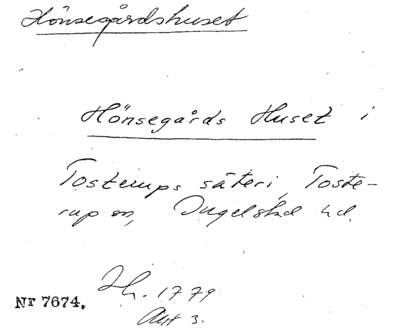 Hönsegårdshuset
Hönsegårds Huset i
Tosterups säteri, Toste-
rup sn, Ingelstad hd.
Jh. 1779
Akt 3.
Nr 7674.